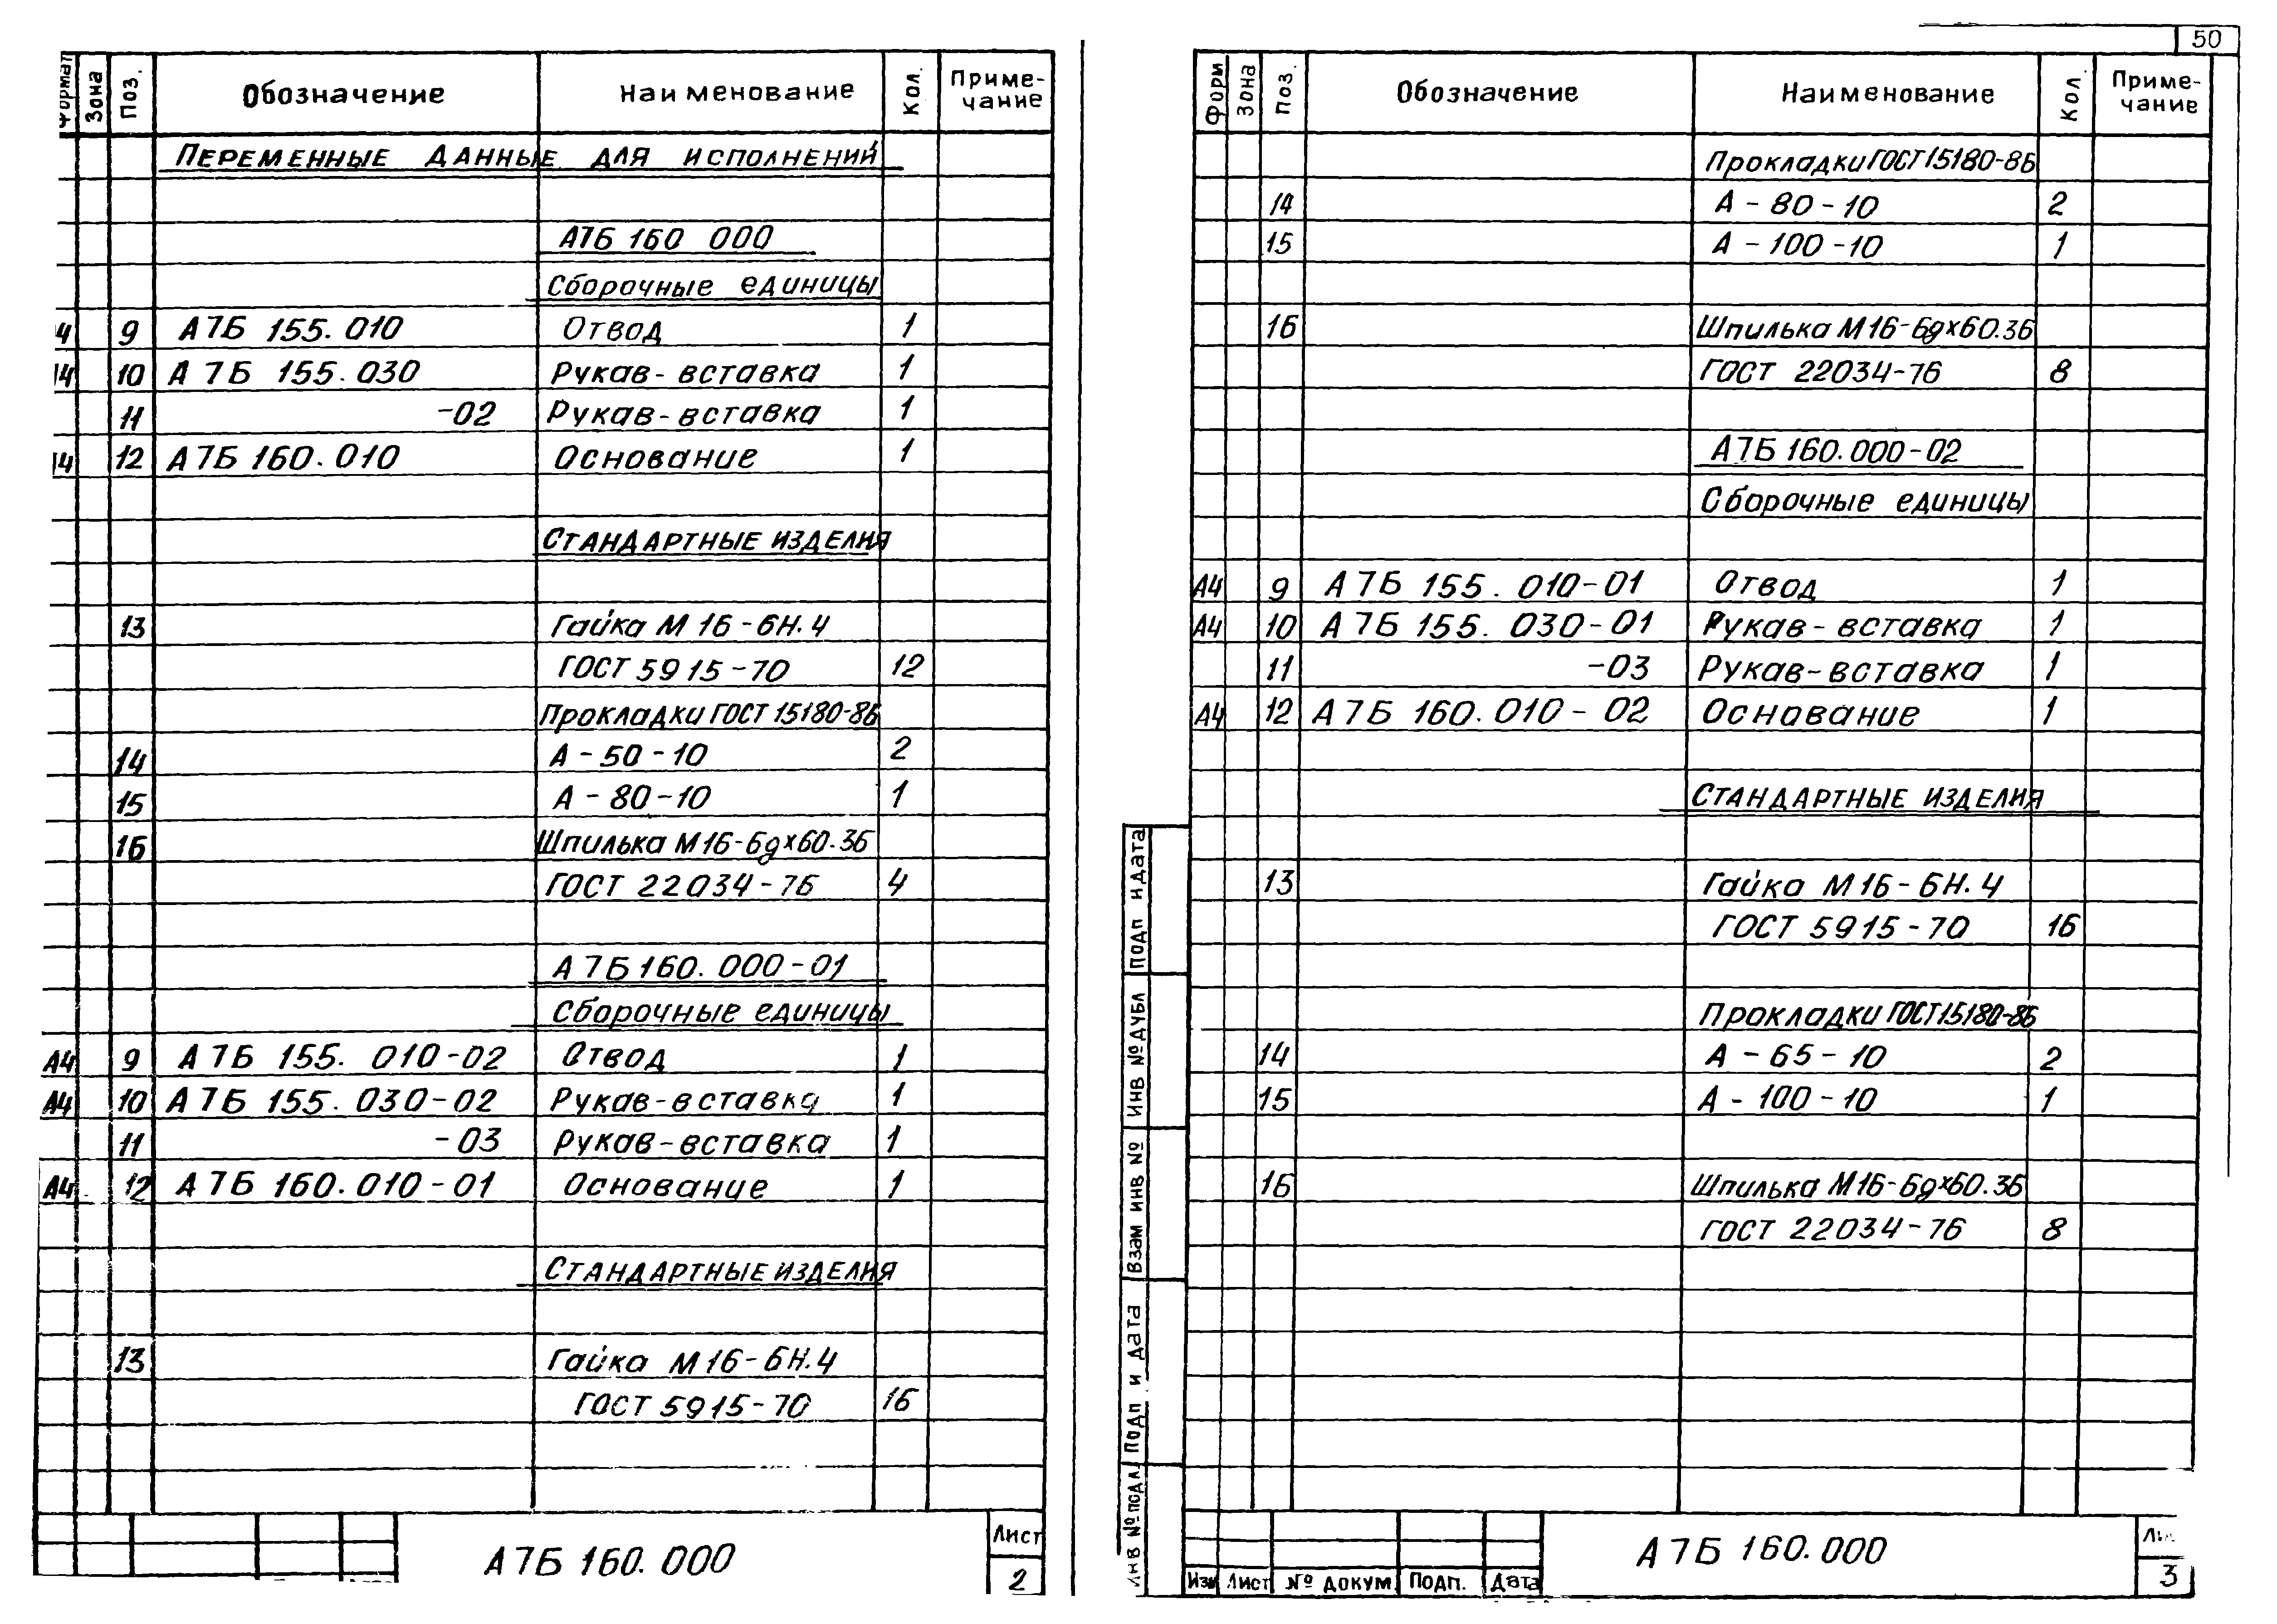 Формат Зона Поз. Обозначение Наименование Кол. Приме-
чание
ПЕРЕМЕННЫЕ ДАННЫЕ ДЛЯ ИСПОЛНЕНИЙ
А7Б 160 000
Сборочные единицы
4 9 А7Б 155.010 Отвод 1
14 10 А7Б 155.030 Рукав-вставка 1
11 -02 Рукав-вставка 1
14 12 А7Б 160.010 Основание 1
СТАНДАРТНЫЕ ИЗДЕЛИЯ
13 Гайка М16-6Н.4
ГОСТ 5915-70 12
Прокладки ГОСТ 15180-86
14 А-50-10 2
15 А-80-10 1
16 Шпилька М16-6gх60.36
ГОСТ 22034-76 4
А7Б160.000-01
Сборочные единицы
А4 9 А7Б 155.010-02 Отвод 1
А4 10 А7Б 155.030-02 Рукав-вставка 1
11 -03 Рукав-вставка 1
А4 12 А7Б 160.010-01 Основание 1
СТАНДАРТНЫЕ ИЗДЕЛИЯ
13 Гайка М16-6Н.4
ГОСТ 5915-70 16
А7Б 160.000
Лист
2
50
Форм Зона Поз. Обозначение Наименование Кол. Приме-
чание
Прокладки ГОСТ 15180-86
14 А-80-10 2
15 А-100-10 1
16 Шпилька М16-6gх60.36
ГОСТ 22034-76 8
А7Б 160.000-02
Сборочные единицы
А4 9 А7Б 155.010-01 Отвод 1
А4 10 А7Б 155.030-01 Рукав-вставка 1
11 -03 Рукав-вставка 1
А4 12 А7Б 160.010-02 Основание 1
СТАНДАРТНЫЕ ИЗДЕЛИЯ
13 Гайка М16-6Н.4
ГОСТ 5915-70 16
Прокладки ГОСТ 15180-86
14 А-65-10 2
15 А-100-10 1
16 Шпилька М16-6gх60.36
ГОСТ 22034-76 8
Подп и дата
Инв № дубл
Взам инв №
Подп и дата
Инв № подл.
Изм Лист № докум. Подп. Дата
А7Б 160.000
3